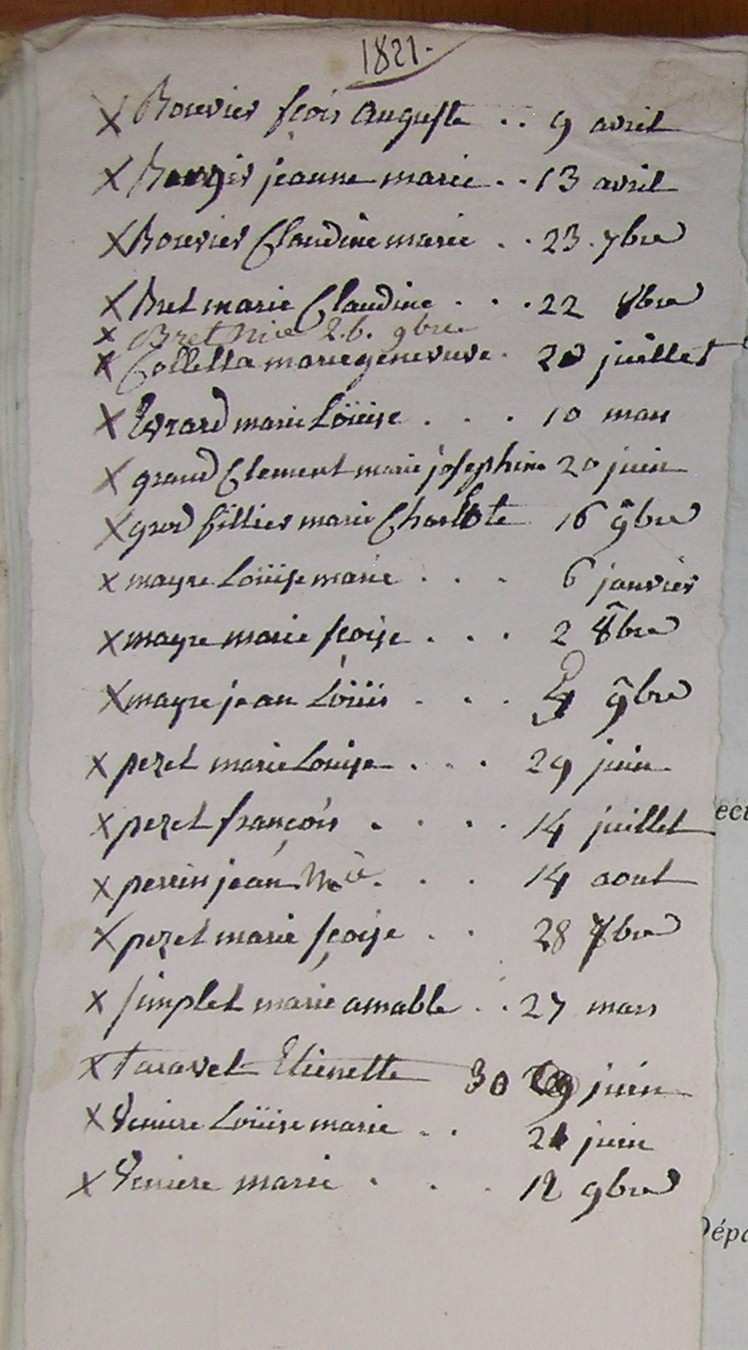 1821.
x Bouvier fçois auguste .. 9 avril
x jeanne marie .. 13 avril
x Bouvier Claudine marie .. 23. 7bre
x Bret marie Claudine . . . 22 8bre
x Bret 26. 9bre
x Colletta marie genevieve . juillet
x Evrard marie Loüise . . . 10 mars
x grand Clement marie josephine 20 juin
x grod fillier marie Charlote 16 9bre
x mayre Loüise marie . . . 6 janvier
x mayre marie fçoise . . . 2 8bre
x mayre jean Loüis . . . 4 9bre
x pezet marie Louise . . . 29 juin
x pezet françois . . . . 14 juillet
x perrin jean Mie . . . 14 aout
x pezet marie fçoise . . 28 7bre
x simplet marie amable . . 27 mars
x taravet Etienette 30 juin
x Veniere Loüise marie . . 21 juin
x Veniere marie . . . 12 9bre
ect
Dépa